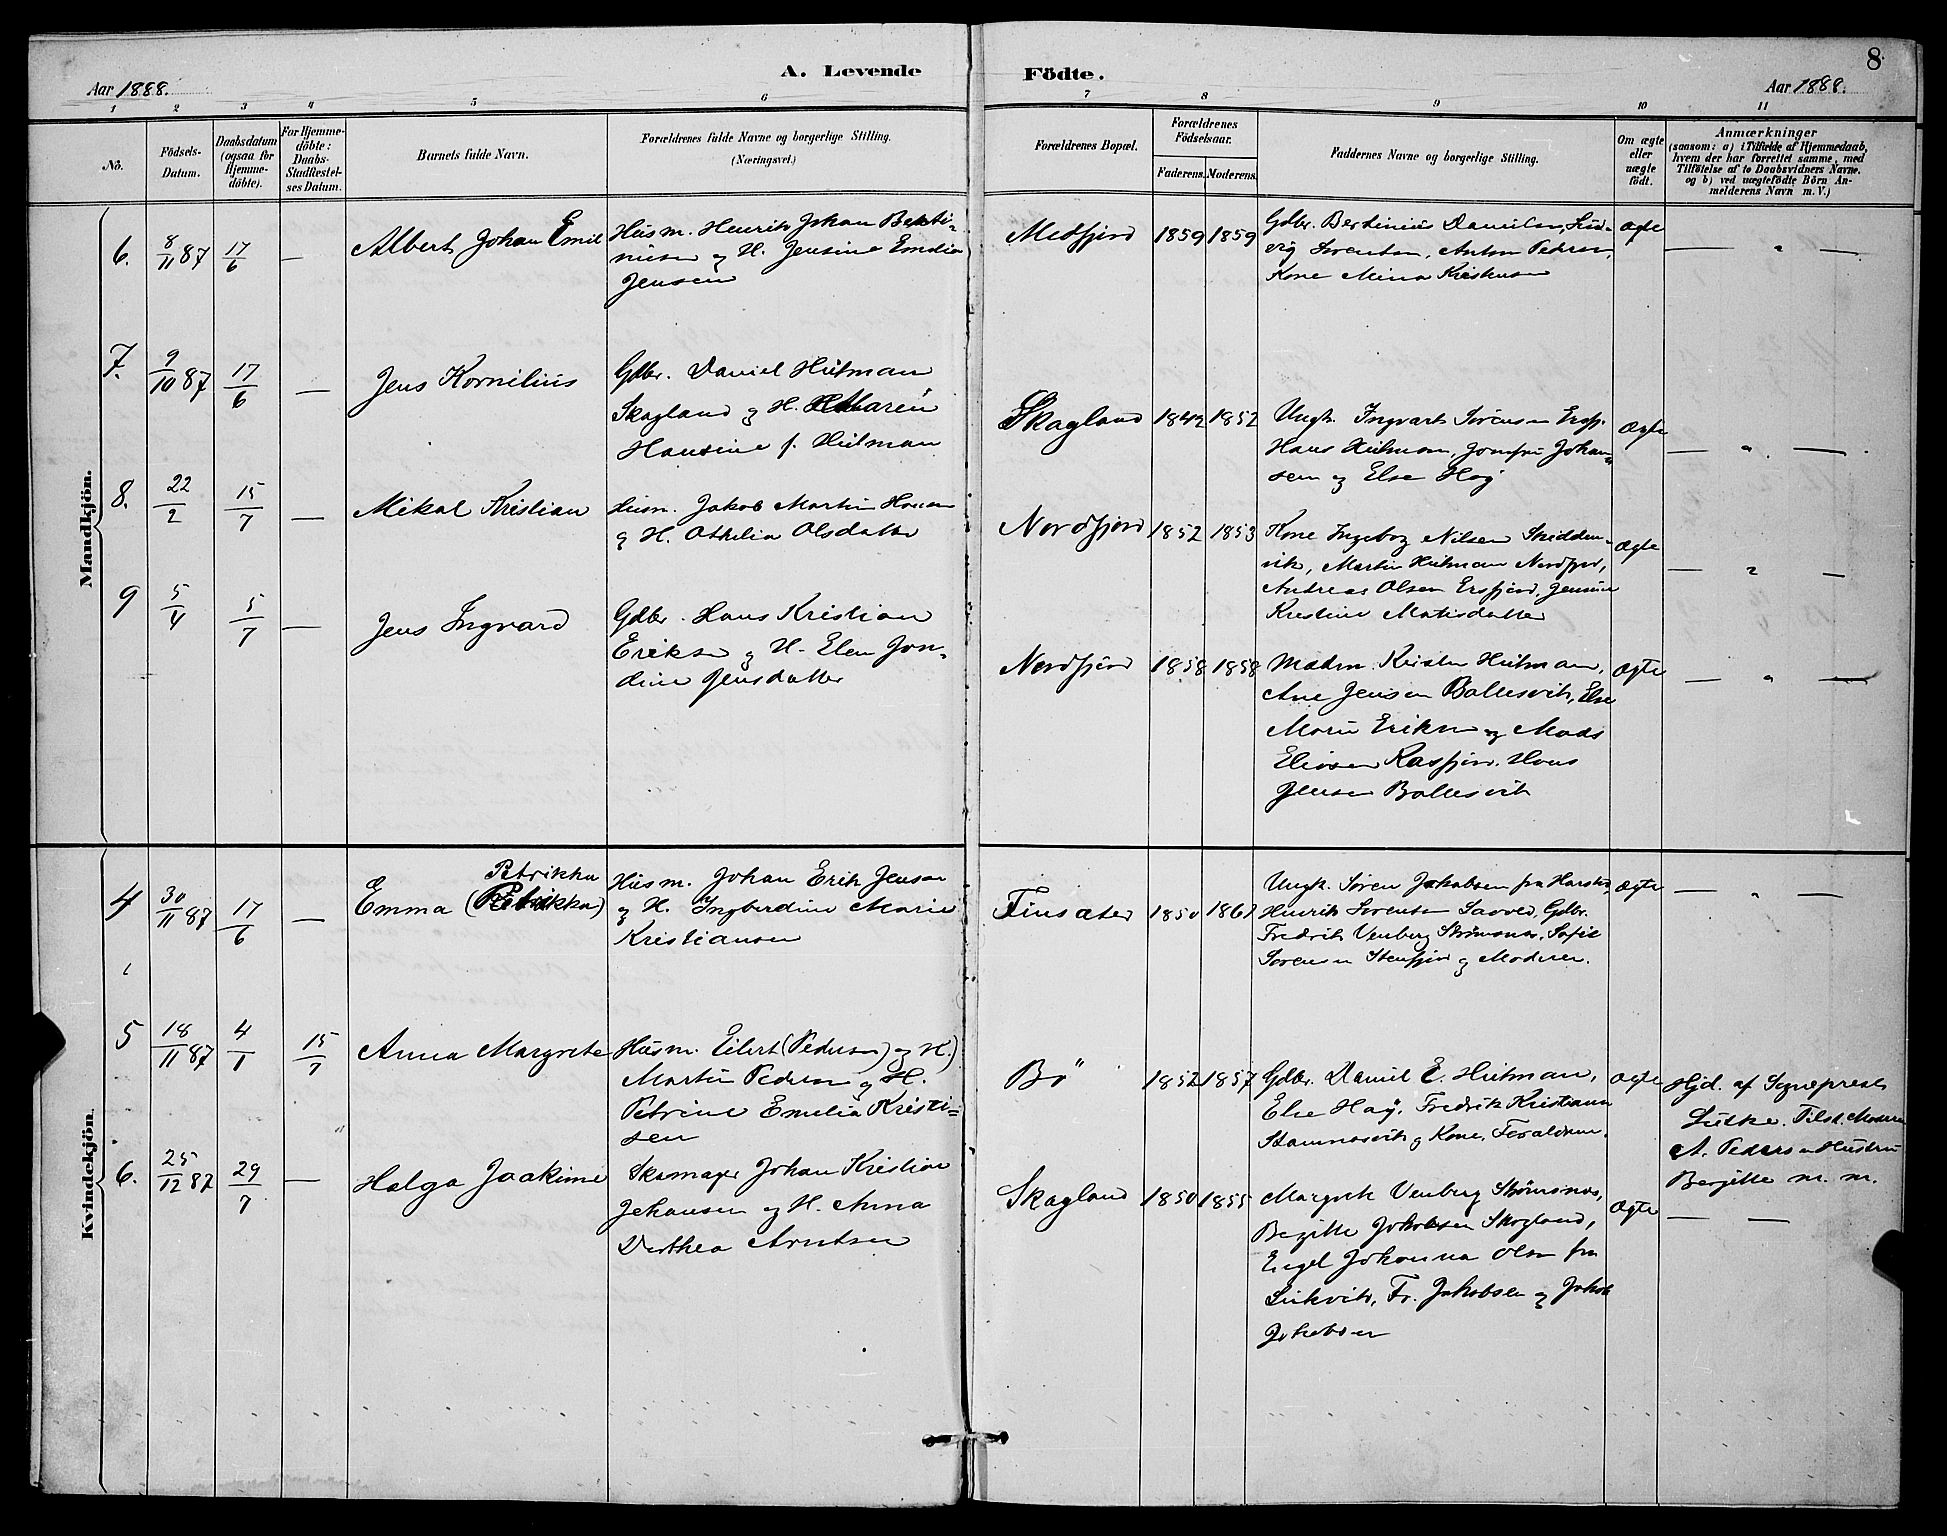 8
A. Levende Födte.
Aar 1888. Aar 1888.
1 2 3 4 5 6 7 8 9 10 11
No.
Födsels-
Datum.
Daabsdatum
(ogsaa for
Hjemme-
döbte).
For Hjemme-
döbte:
Daabs-
Stadfestel-
ses Datum.
Barnets fulde Navn.
Forældrenes fulde Navne og borgerlige Stilling.
(Næringsvei.)
Forældrenes Bopæl.
Forældrenes
Födselsaar.
Faderens. Moderens.
Faddernes Navne og borgerlige Stilling.
Om ægte
eller
uægte
födt.
Anmærkninger
(saasom: a) i Tilfælde af Hjemmedaab,
hvem der har forrettet samme, med
Tilföielse af to Daabsvidners Navne.
og b) ved uægtefödte Börn An-
melderens Navn m. V.)
Mandkjön.
6. 8/11 87 17/6 — Albert Johan Emil
Husm. Henrik Johan Berti-
nusen og H. Jensine Emelia
Jensen
Medfjord 1859 1859
Gdbr. Bertinius Danielsen, Lud-
vig Sørensen, Anton Pedersen,
Kone Mina Kristiansen
ægte — " —
7. 9/10 87 17/6 — Jens Kornelius
Gdbr. Daniel Hutman
Skagland og H. Maren
Hansine f. Hutman
Skagland 1842 1852
Ungk. Ingvart Sørensen Ersfj.
Hans Hutman, Jomfru Johan-
sen og Else Høg
ægte — " —
8. 22/2 15/7 — Mikal Kristian
Husm. Jakob Martin Hansen
og H. Othelia Olsdatter
Nordfjord 1852 1853
Kone Ingeborg Nilsen Skidden-
vik, Martin Hutman Nordfjord,
Andreas Olsen Ersfjord, Jensine
Kristine Matisdatter
ægte — " —
9 5/4 5/7 — Jens Ingvard
Gdbr. Hans Kristian
Eriksen og H. Elen Jon-
dine Jensdatter
Nordfjord 1858 1858
Madm. Kirsten Hutman,
Ane Jensen Ballesvik, Else
Marie Eriksen og Mads
Eliasen Kasfjord, Hans
Jensen Ballesvik
ægte — " —
Kvindekjön.
4 30/11 87 17/6 —
Petrikka
Emma (Petrikka)
Husm. Johan Erik Jensen
og H. Ingberdine Marie
Kristiansen
Finsæter 1850 1861
Ungk. Søren Jakobsen fra Harstad,
Henrik Sørensen Gdbr.
Fredrik Venberg Strømsnes, Sofie
Sørensen Stenfjord og Moderen.
ægte — " —
5 18/11 87 4/1 15/7 Anna Margrete
Husm. Eilert (Pedersen) og H.)
Martin Pedersen og H.
Petrine Emelia Kristi-
sen
Bø 1852 1857
Gdbr. Daniel E. Hutman,
Else Høg, Fredrik Kristiansen
Stamnesvik og Kone, Forældrene.
ægte
Hjd. af Sogneprest
Lütke. Tilst. Moderen
A. Pedersen Hustru
Bergitte m. m.
6. 25/12 87 29/7 — Helga Joakime
Skomager Johan Kristian
Johansen og H. Anna
Dorthea Arntsen
Skagland 1850 1855
Margrete Venberg Strømsnes,
Bergitte Jakobsen Skogland,
Engel Johanna Olsen fra
Fr. Jakobsen og Jakob
Jakobsen
ægte — —